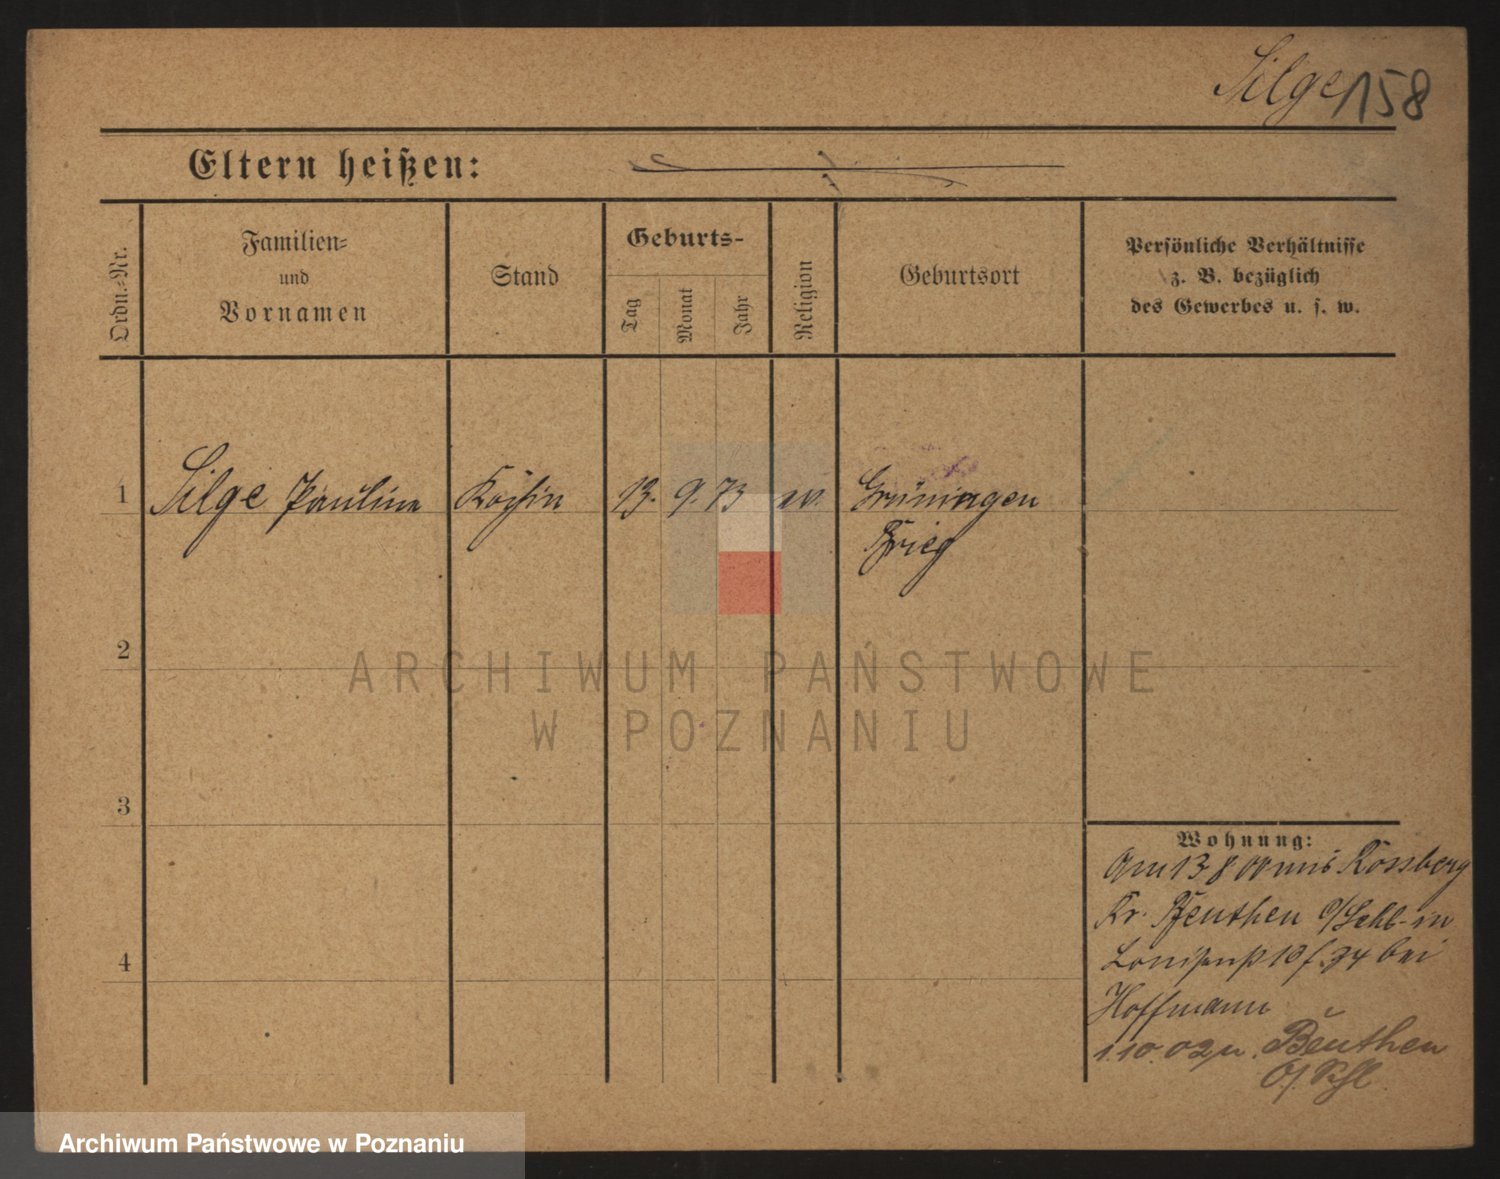 Silge 158
Eltern heißen:
Ordn.-Nr.
Familien-
und
Vornamen
Stand
Geburts-
Tag
Monat
Jahr
Religion
Geburtsort
Persönliche Verhältnisse
z. B. bezüglich
des Gewerbes u. s. w.
1 Silge Pauline Köchin 13. 9. 73 ev. Grüningen
Brieg
2
3
4
Wohnung:
Am 13 8 00 aus Rossberg
Kr. Beuthen O/Schl. in
Louisenst 18 f. 34 bei
Hoffmann
1.10.02 n. Beuthen
O/Schl.
ARCHIWUM PAŃSTWOWE
W POZNANIU
Archiwum Państwowe w Poznaniu